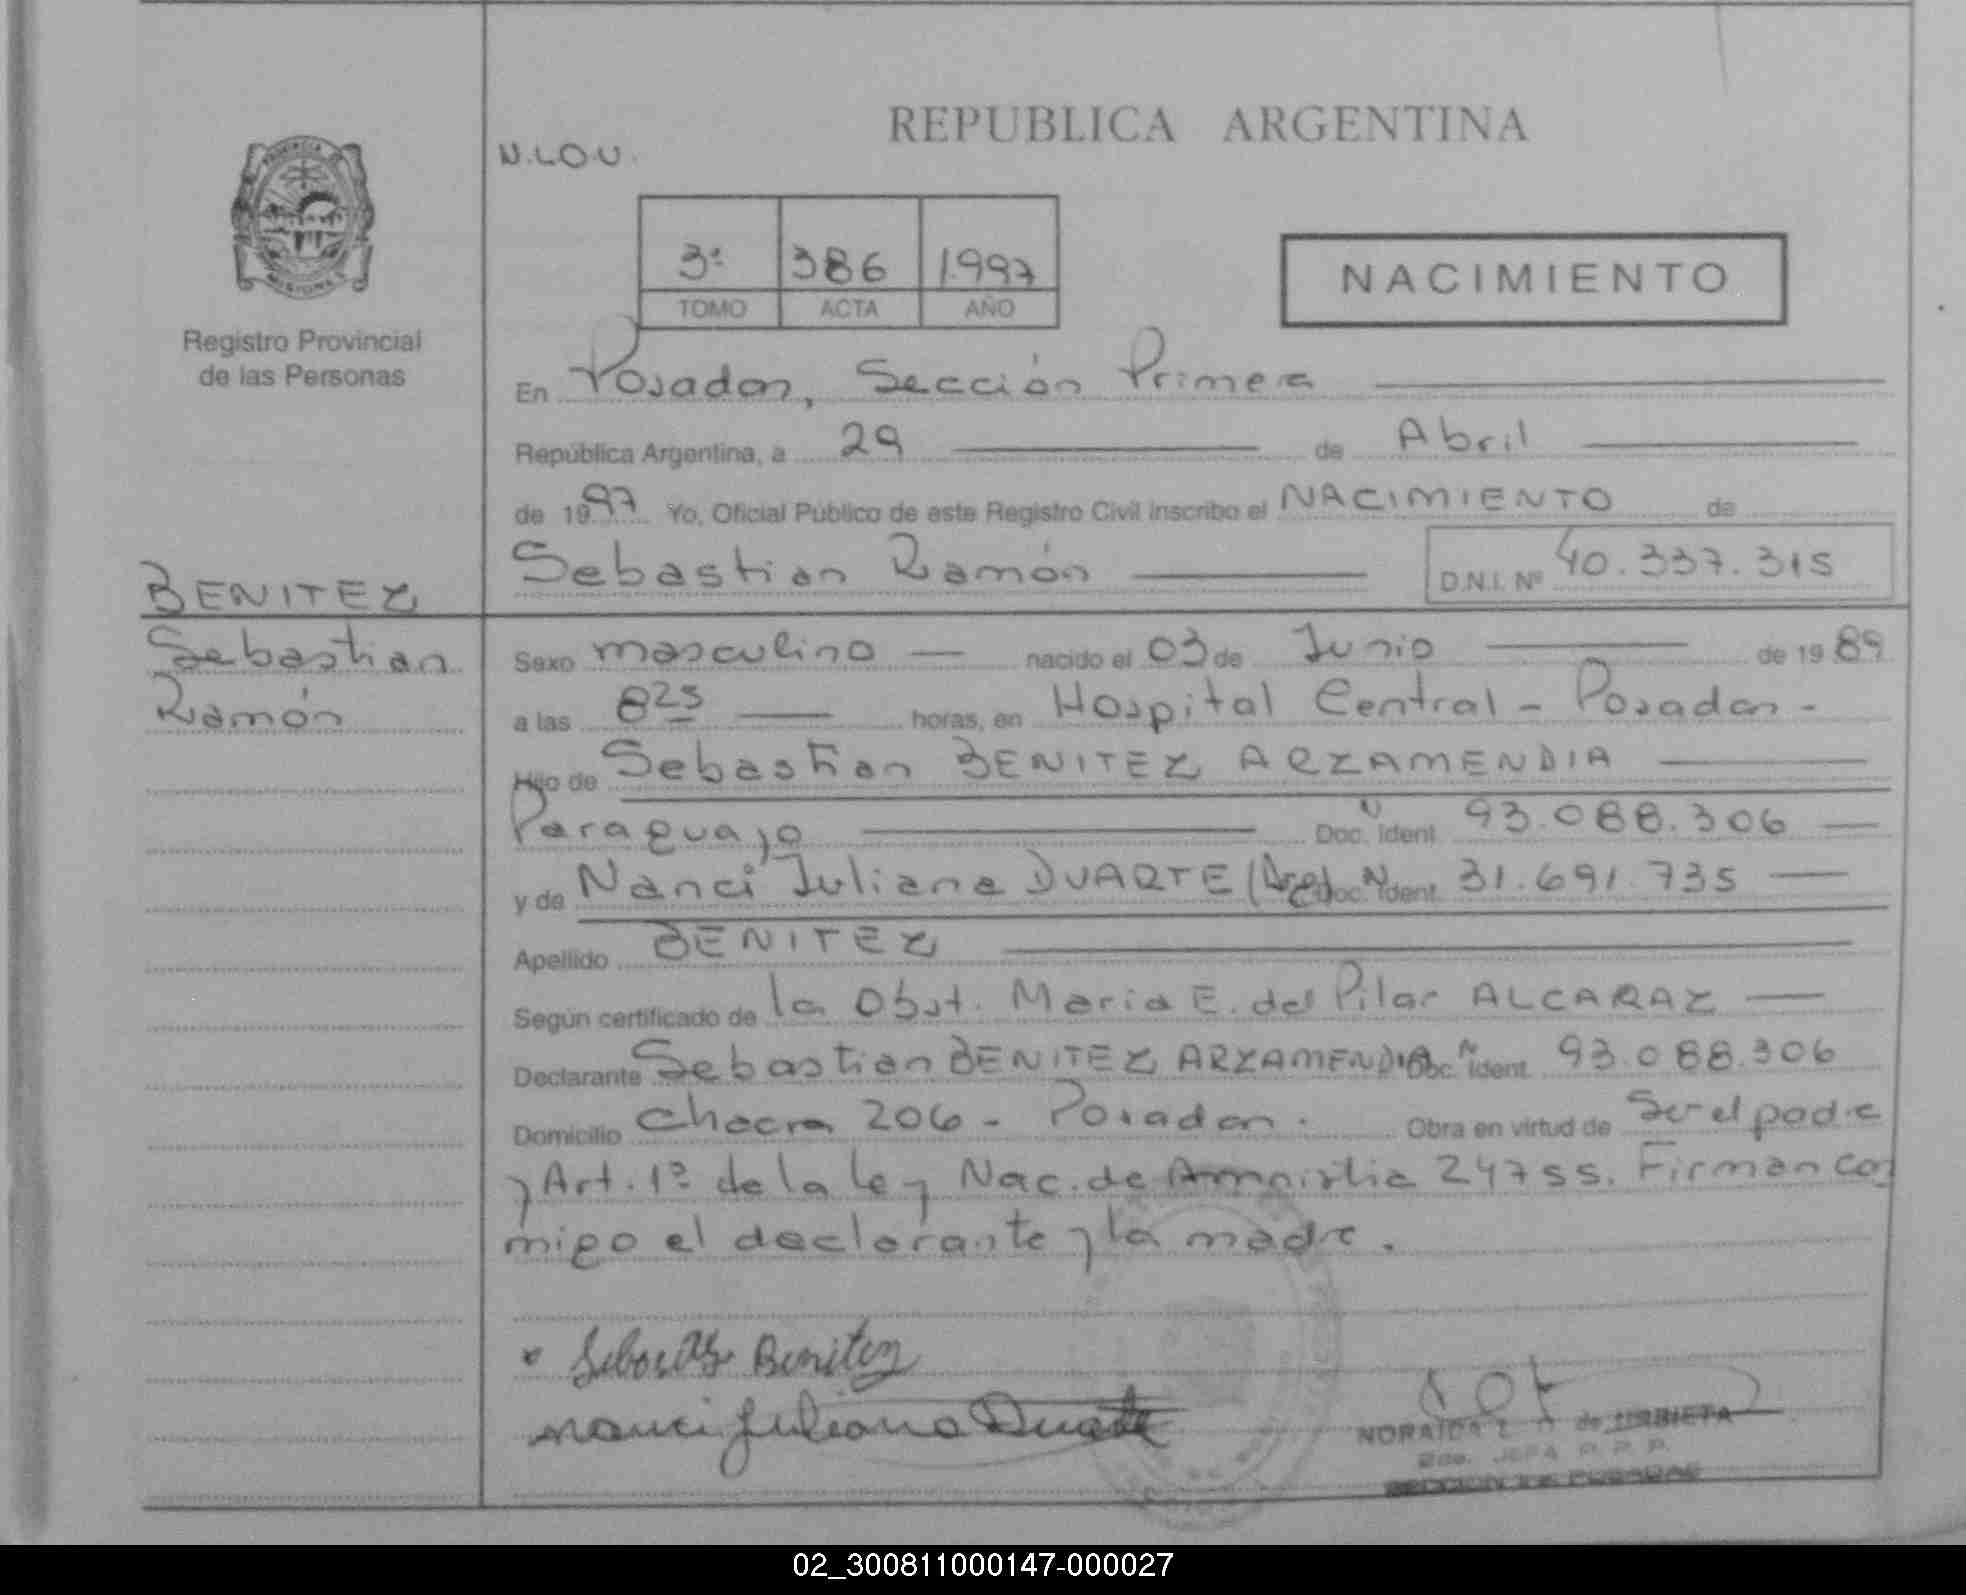 REPUBLICA ARGENTINA
N.LO.U.
3º 386 1997
TOMO ACTA AÑO
NACIMIENTO
Registro Provincial
de las Personas
En Posadas, Sección Primera
República Argentina, a 29 de Abril
de 1997 Yo, Oficial Público de este Registro Civil inscribo el NACIMIENTO de
Sebastian Ramón D.N.I. Nº 40.337.315
BENITEZ
Sebastian
Ramón
Sexo masculino nacido el 03 de Junio de 1989
a las 8 25 horas, en Hospital Central - Posadas -
Hijo de Sebastian BENITEZ ARZAMENDIA
Paraguayo Doc. Ident. N 93.088.306
y de Nanci Juliana DUARTE (Arg) Doc. Ident. N 31.691.735
Apellido BENITEZ
Según certificado de la Obst. Maria E. del Pilar ALCARAZ
Declarante Sebastian BENITEZ ARZAMENDIA Doc. N Ident. 93.088.306
Domicilio Chacra 206 - Posadas. Obra en virtud de Ser el padre
y Art. 1º de la ley Nac. de Amnistia 24755. Firman con
migo el declarante y la madre.
Benitez
Nanci Juliana Duarte
NORAIDA de URBIETA
JEFA R. P. P.
SECCION 1a POSADAS
02_300811000147-000027